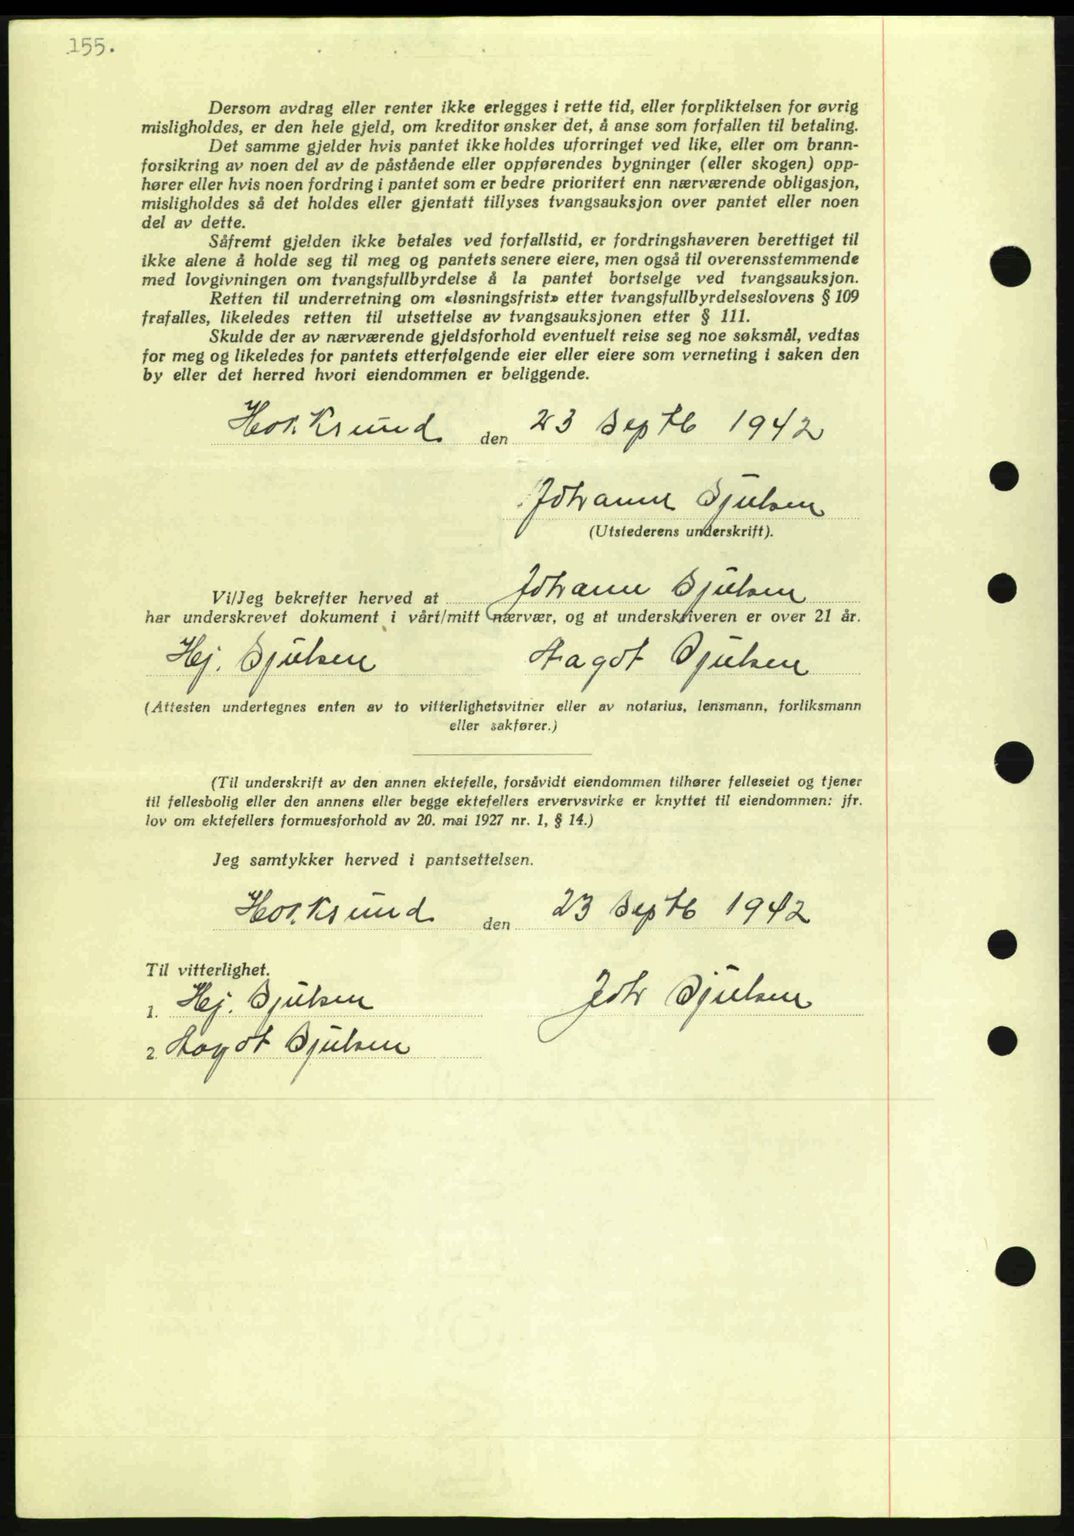 155.
Dersom avdrag eller renter ikke erlegges i rette tid, eller forpliktelsen for øvrig
misligholdes, er den hele gjeld, om kreditor ønsker det, å anse som forfallen til betaling.
Det samme gjelder hvis pantet ikke holdes uforringet ved like, eller om brann-
forsikring av noen del av de påstående eller oppførendes bygninger (eller skogen) opp-
hører eller hvis noen fordring i pantet som er bedre prioritert enn nærværende obligasjon,
misligholdes så det holdes eller gjentatt tillyses tvangsauksjon over pantet eller noen
del av dette.
Såfremt gjelden ikke betales ved forfallstid, er fordringshaveren berettiget til
ikke alene å holde seg til meg og pantets senere eiere, men også til overensstemmende
med lovgivningen om tvangsfullbyrdelse å la pantet bortselge ved tvangsauksjon.
Retten til underretning om «løsningsfrist» etter tvangsfullbyrdelseslovens § 109
frafalles, likeledes retten til utsettelse av tvangsauksjonen etter § 111.
Skulde der av nærværende gjeldsforhold eventuelt reise seg noe søksmål, vedtas
for meg og likeledes for pantets etterfølgende eier eller eiere som verneting i saken den
by eller det herred hvori eiendommen er beliggende.
Hokksund den 23 Septb 1942
Johanne Gjulsen
(Utstederens underskrift).
Vi/Jeg bekrefter herved at Johanne Gjulsen
har underskrevet dokument i vårt/mitt nærvær, og at underskriveren er over 21 år.
Hej. Gjulsen Aagot Gjulsen
(Attesten undertegnes enten av to vitterlighetsvitner eller av notarius, lensmann, forliksmann
eller sakfører.)
(Til underskrift av den annen ektefelle, forsåvidt eiendommen tilhører felleseiet og tjener
til fellesbolig eller den annens eller begge ektefellers ervervsvirke er knyttet til eiendommen: jfr.
lov om ektefellers formuesforhold av 20. mai 1927 nr. 1, § 14.)
Jeg samtykker herved i pantsettelsen.
Hokksund den 23 Septb 1942
Til vitterlighet.
1. Hej. Gjulsen Joh Gjulsen
2. Aagot Gjulsen